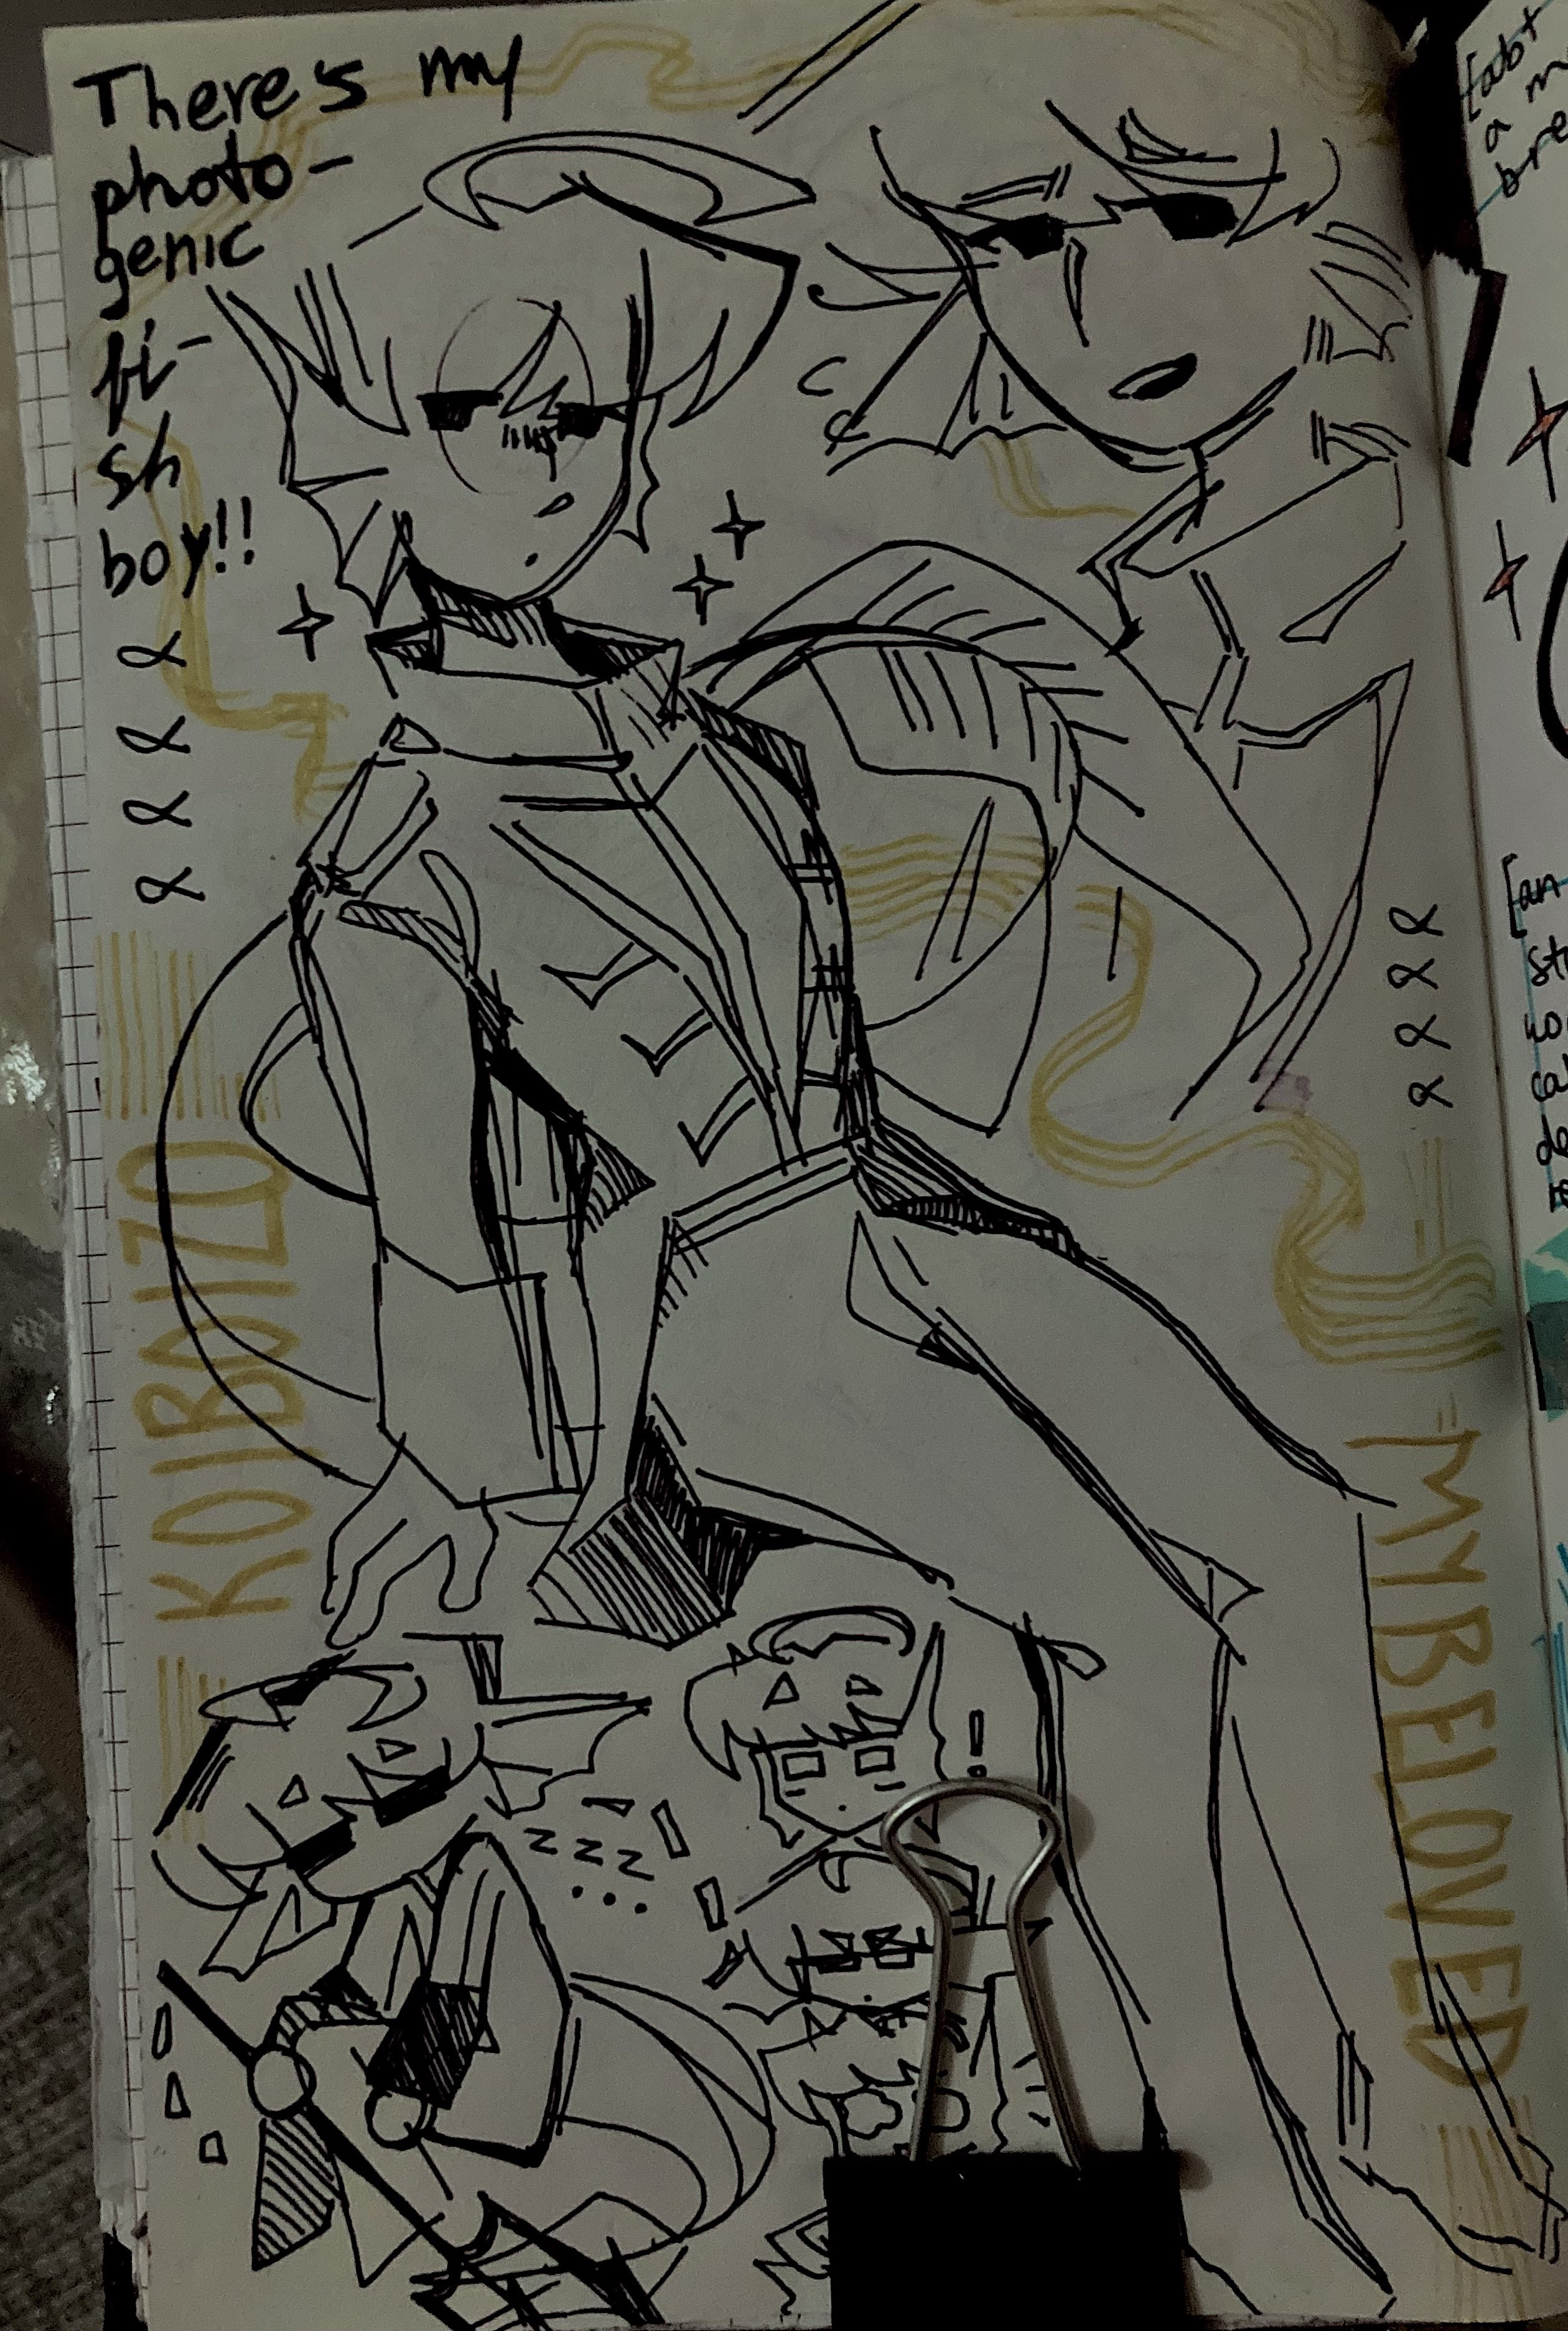 There's my
photo-
genic
fi-
sh
boy!!
KOIBOIZO
MY BELOVED
!
zzz...
[abt
a m
bre
[an